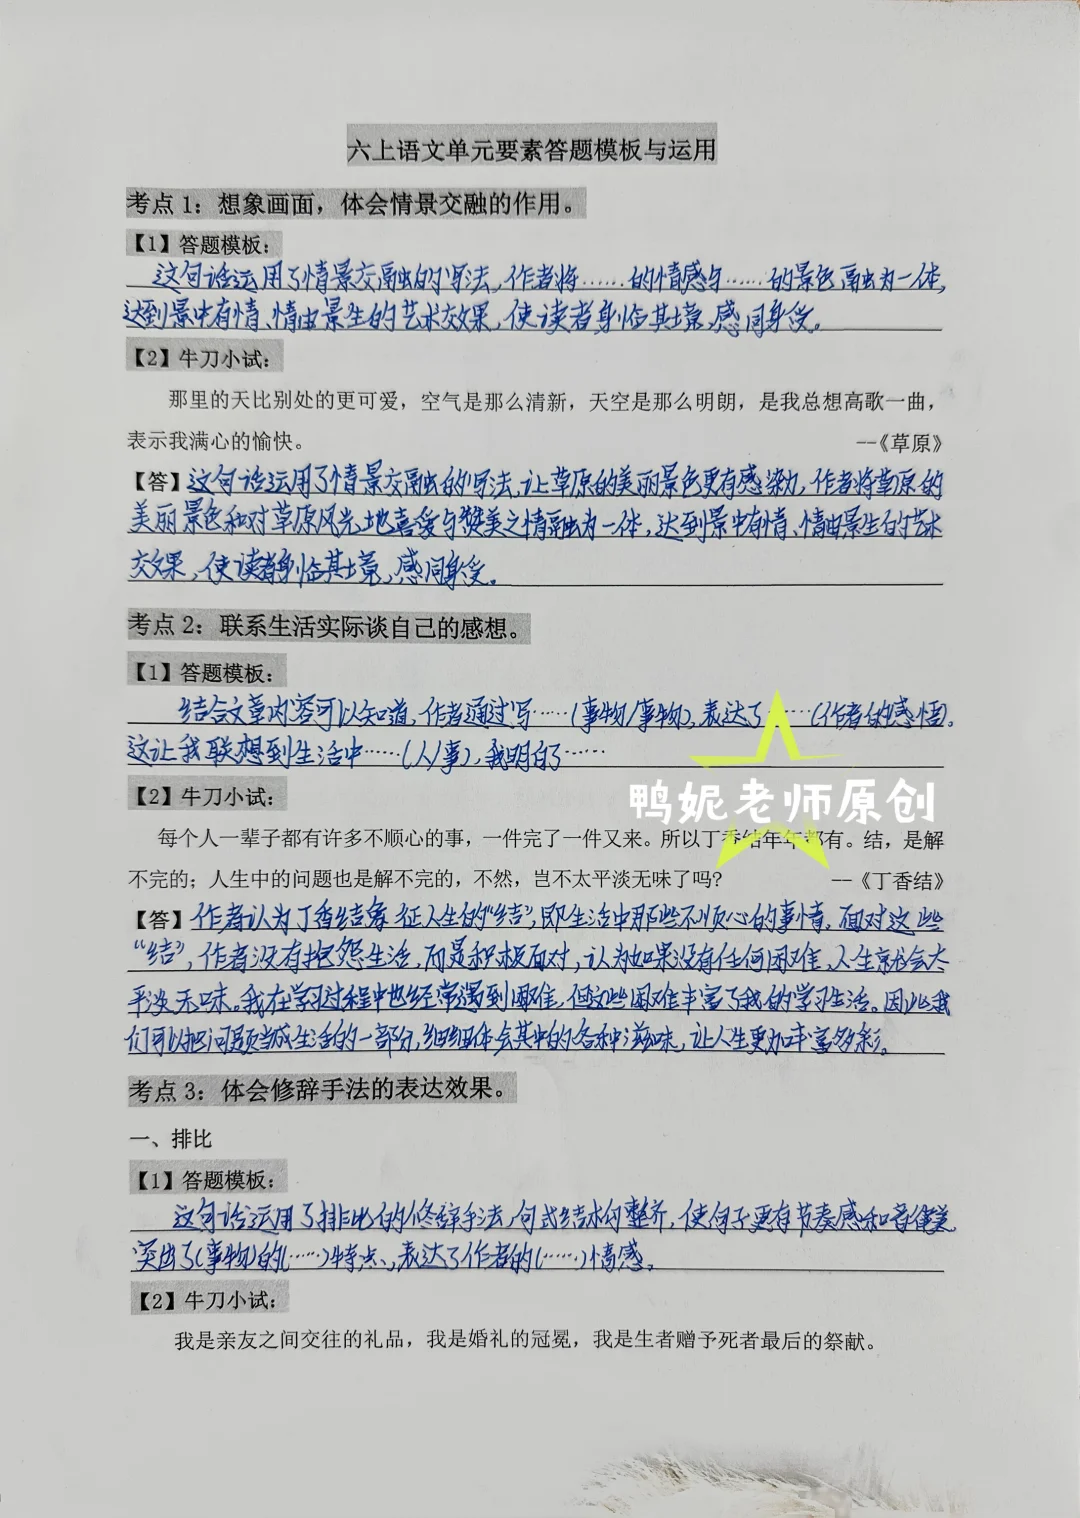 六上语文单元要素答题模板与运用
考点1：想象画面，体会情景交融的作用。
【1】答题模板：
这句话运用了情景交融的写法，作者将……的情感与……的景色融为一体，
达到景中有情、情由景生的艺术效果，使读者身临其境、感同身受。
【2】牛刀小试：
那里的天比别处的更可爱，空气是那么清新，天空是那么明朗，是我总想高歌一曲，
表示我满心的愉快。 --《草原》
【答】这句话运用了情景交融的写法，让草原的美丽景色更有感染力，作者将草原的
美丽景色和对草原风光地喜爱与赞美之情融为一体，达到景中有情、情由景生的艺术
效果，使读者身临其境，感同身受。
考点2：联系生活实际谈自己的感想。
【1】答题模板：
结合文章内容可以知道，作者通过写……（事物/事物），表达了……（作者的感悟）。
这让我联想到生活中……（人/事），我明白了……
【2】牛刀小试：
鸭妮老师原创
每个人一辈子都有许多不顺心的事，一件完了一件又来。所以丁香结年年都有。结，是解
不完的；人生中的问题也是解不完的，不然，岂不太平淡无味了吗？ --《丁香结》
【答】作者认为丁香结象征人生的“结”，即生活中那些不顺心的事情，面对这些
“结”，作者没有抱怨生活，而是积极面对，认为如果没有任何困难，人生就会太
平淡无味。我在学习过程中也经常遇到困难，但这些困难丰富了我的学习生活。因此我
们可以把问题当成生活的一部分，细细体会其中的各种滋味，让人生更加丰富多彩。
考点3：体会修辞手法的表达效果。
一、排比
【1】答题模板：
这句话运用了排比的修辞手法，句式结构整齐，使句子更有节奏感和音律美
突出了（事物）的（……）特点，表达了作者的（……）情感。
【2】牛刀小试：
我是亲友之间交往的礼品，我是婚礼的冠冕，我是生者赠予死者最后的祭献。